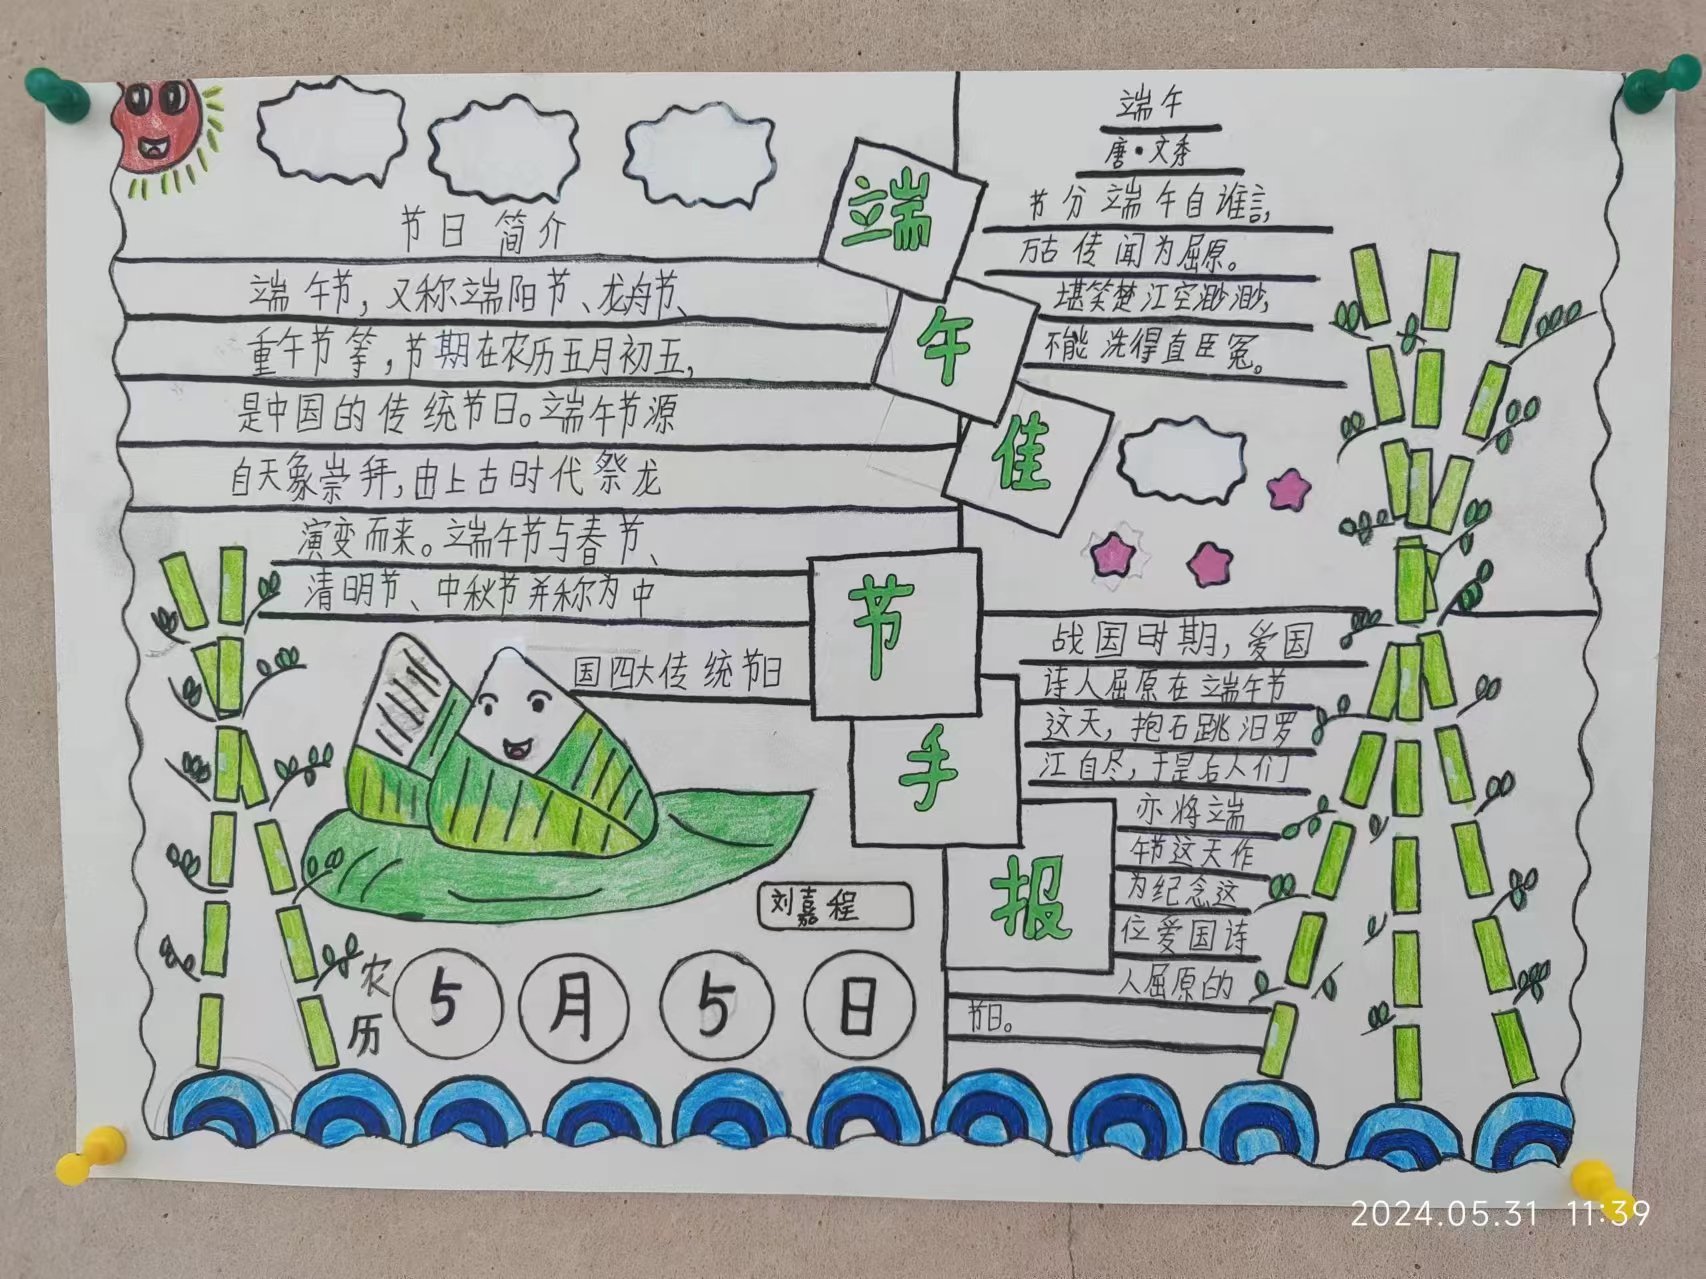 节日简介
端午节，又称端阳节、龙舟节、
重午节等，节期在农历五月初五，
是中国的传统节日。端午节源
自天象崇拜，由上古时代祭龙
演变而来。端午节与春节、
清明节、中秋节并称为中
国四大传统节日
端
午
佳
节
手
报
端午
唐·文秀
节分端午自谁言，
万古传闻为屈原。
堪笑楚江空渺渺，
不能洗得直臣冤。
战国时期，爱国
诗人屈原在端午节
这天，抱石跳汨罗
江自尽，于是后人们
亦将端
午节这天作
为纪念这
位爱国诗
人屈原的
节日。
刘嘉程
农历
5月5日
2024.05.31 11:39